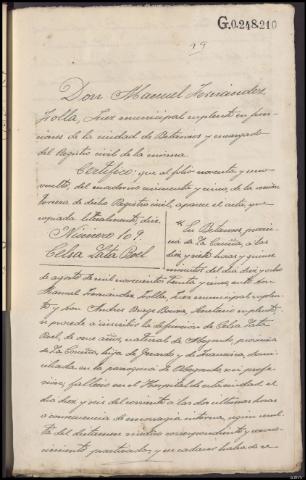 G.0.248.210
19
Don Manuel Fernández
Lolla, Juez municipal suplente en fun-
ciones de la ciudad de Betanzos y encargado
del Registro civil de la misma.
Certifico: que al folio noventa y uno
vuelto, del cuaderno cincuenta y cinco, de la sección
tercera de dicho Registro civil, aparece el acta, que
copiada literalmente, dice.
Número 109.
Celsa Lata Roel
"En Betanzos provin-
cia de La Coruña, a las
diez y siete horas y quince
minutos del día diez y ocho
de agosto de mil novecientos treinta y cinco, ante don
Manuel Fernández Lolla, juez municipal suplen-
te y don Andrés Seoane, Secretario suplente,
se procede a inscribir la defunción de Celsa Lata
Roel, de once años, natural de Abegondo, provincia
de La Coruña, hija de Gerardo y de Francisca, domi-
ciliada en la parroquia de Abegondo, sin profe-
sión; falleció en el Hospital de esta ciudad, el
día diez y seis del corriente a las dos horas
a consecuencia de hemorragia interna, según resul-
ta del dictamen médico correspondiente y recono-
cimiento practicado, y su cadáver habrá de re-